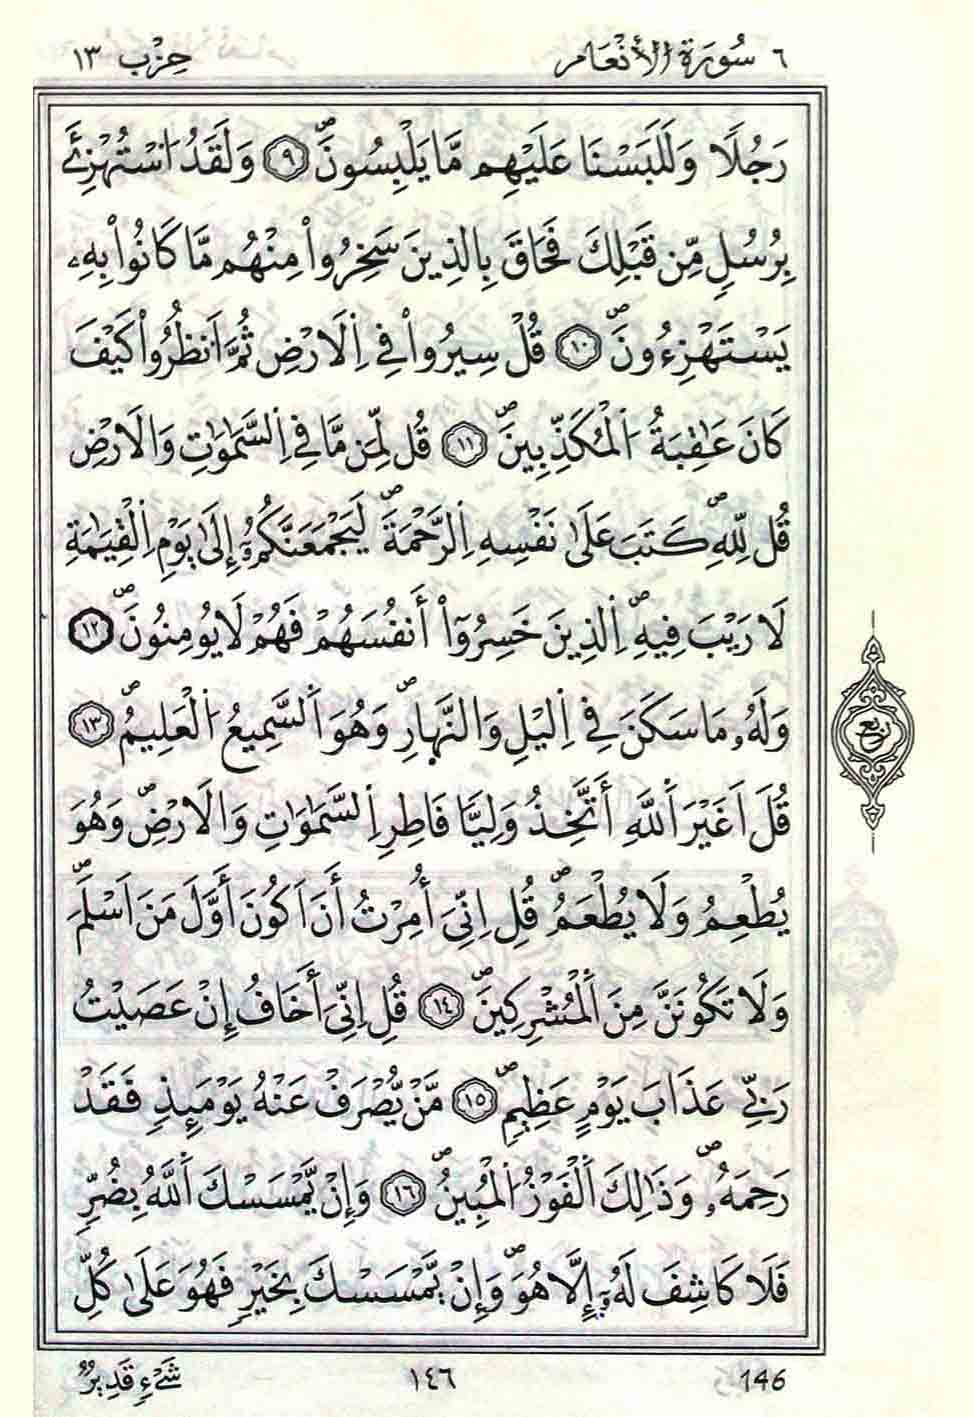 ٦ سُورَةُ الأَنْعَامِ حِزْب ١٣
رَجُلًا وَلَلَبَسْنَا عَلَيْهِم مَّا يَلْبِسُونَۖ ٩ وَلَقَدُ اَسْتُهْزِئَ
بِرُسُلٍ مِّن قَبْلِكَ فَحَاقَ بِالذِينَ سَخِرُواْ مِنْهُم مَّا كَانُواْ بِهِۦ
يَسْتَهْزِءُونَۖ ١٠ قُلْ سِيرُواْ فِي اِلَارْضِ ثُمَّ اَنظُرُواْ كَيْفَ
كَانَ عَٰقِبَةُ اُلْمُكَذِّبِينَۖ ١١ قُل لِّمَن مَّا فِي اِلسَّمَٰوَٰتِ وَالَارْضِ
قُل لِّلهِۖ كَتَبَ عَلَىٰ نَفْسِهِ اِلرَّحْمَةَۖ لَيَجْمَعَنَّكُمُۥٓ إِلَىٰ يَوْمِ اِلْقِيَٰمَةِ
لَا رَيْبَ فِيهِۖ اِلذِينَ خَسِرُوٓاْ أَنفُسَهُمْ فَهُمْ لَا يُومِنُونَۖ ١٢
وَلَهُۥ مَا سَكَنَ فِي اِليْلِ وَالنَّهٰارِۖ وَهُوَ اَلسَّمِيعُ اُلْعَلِيمُۖ ١٣
رُبُع
قُلَ اَغَيْرَ اَللَّهِ أَتَّخِذُ وَلِيّٗا فَاطِرِ اِلسَّمَٰوَٰتِ وَالَارْضِۖ وَهُوَ
يُطْعِمُ وَلَا يُطْعَمُۖ قُلِ اِنِّيَ أُمِرْتُ أَنَ اَكُونَ أَوَّلَ مَنَ اَسْلَمَۖ
وَلَا تَكُونَنَّ مِنَ اَلْمُشْرِكِينَۖ ١٤ قُلِ اِنِّيَ أَخَافُ إِنْ عَصَيْتُ
رَبِّي عَذَابَ يَوْمٍ عَظِيمٖۖ ١٥ مَّنْ يُّصْرَفْ عَنْهُ يَوْمَئِذٖ فَقَدْ
رَحِمَهُۥۖ وَذَٰلِكَ اَلْفَوْزُ اُلْمُبِينُۖ ١٦ وَإِنْ يَّمْسَسْكَ اَللَّهُ بِضُرّٖ
فَلَا كَاشِفَ لَهُۥٓ إِلَّا هُوَۖ وَإِنْ يَّمْسَسْكَ بِخَيْرٖ فَهُوَ عَلَىٰ كُلِّ
شَےْءٖ قَدِيرٞ ١٤٦ 146